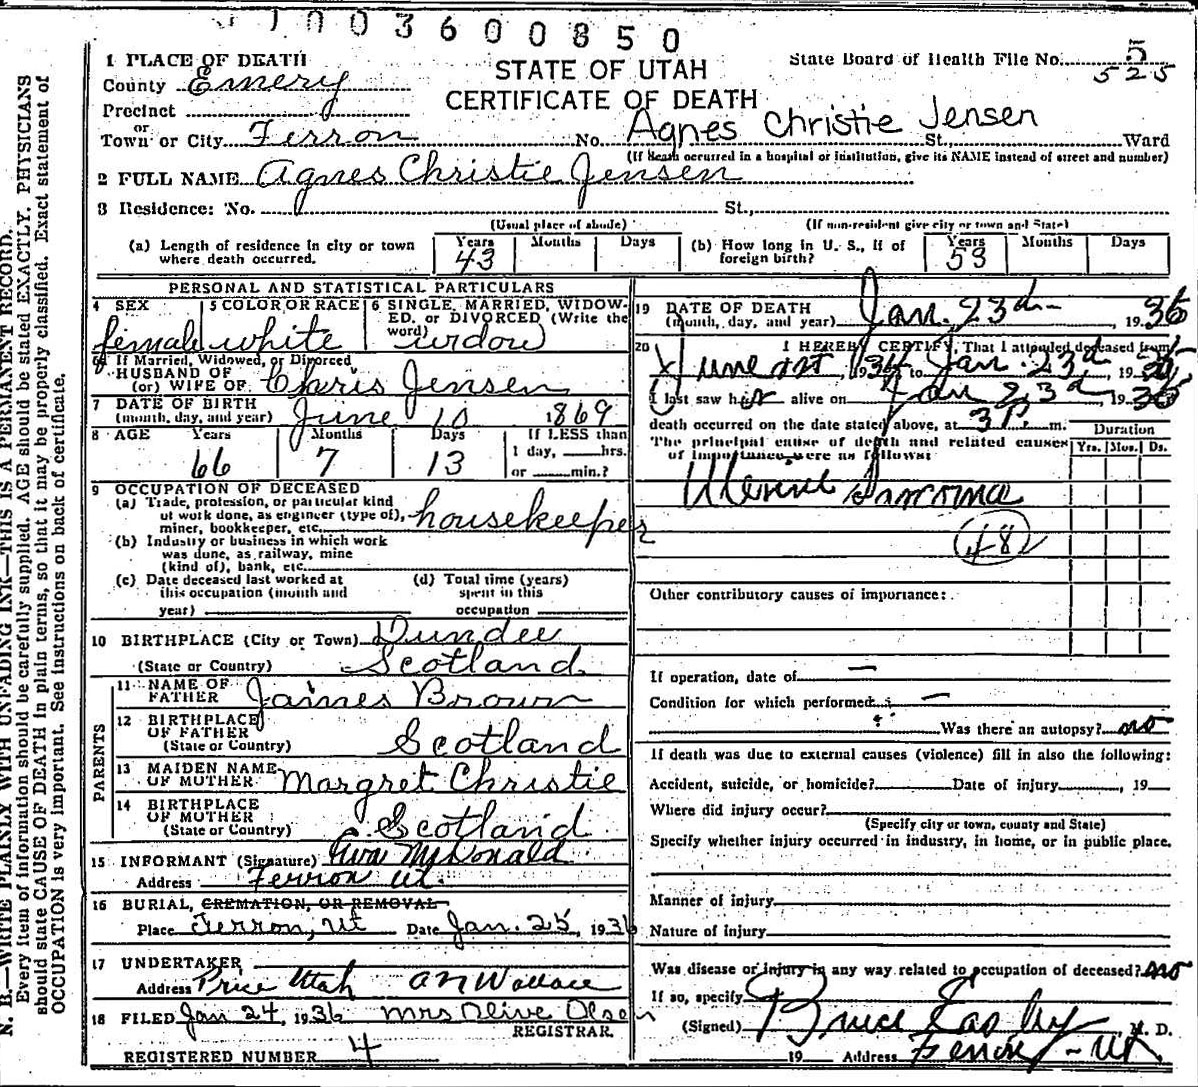 1003600850
1 PLACE OF DEATH
County Emery
Precinct
or
Town or City Ferron No. Agnes Christie Jensen St. Ward
STATE OF UTAH
CERTIFICATE OF DEATH
State Board of Health File No. 5
525
(If death occurred in a hospital or institution, give its NAME instead of street and number)
2 FULL NAME Agnes Christie Jensen
3 Residence: No. St.,
(Usual place of abode) (If non-resident give city or town and State)
(a) Length of residence in city or town where death occurred. Years 43 Months Days
(b) How long in U. S., if of foreign birth? Years 53 Months Days
PERSONAL AND STATISTICAL PARTICULARS
4 SEX female
5 COLOR OR RACE white
6 SINGLE, MARRIED, WIDOWED, or DIVORCED (Write the word) widow
6a If Married, Widowed, or Divorced
HUSBAND OF
(or) WIFE OF Chris Jensen
7 DATE OF BIRTH
(month, day, and year) June 10 1869
8 AGE Years Months Days If LESS than
66 7 13 1 day, hrs.
or min.?
9 OCCUPATION OF DECEASED
(a) Trade, profession, or particular kind
of work done, as engineer (type of),
miner, bookkeeper, etc. housekeeper
(b) Industry or business in which work
was done, as railway, mine
(kind of), bank, etc.
(c) Date deceased last worked at
this occupation (month and
year)
(d) Total time (years)
spent in this
occupation
10 BIRTHPLACE (City or Town) Dundee
(State or Country) Scotland
PARENTS
11 NAME OF
FATHER James Brown
12 BIRTHPLACE
OF FATHER
(State or Country) Scotland
13 MAIDEN NAME
OF MOTHER Margret Christie
14 BIRTHPLACE
OF MOTHER
(State or Country) Scotland
15 INFORMANT (Signature) McDonald
Address Ferron Ut.
16 BURIAL, CREMATION, OR REMOVAL
Place Ferron, Ut Date Jan. 25, 1936
17 UNDERTAKER
Address Price Utah A N Wallace
18 FILED Jan 24, 1936 Mrs Olive Olsen
REGISTRAR.
REGISTERED NUMBER 4
19 DATE OF DEATH
(month, day, and year) Jan. 23d 1936
20 I HEREBY CERTIFY, That I attended deceased from
June 1st, 193 to Jan. 23d, 19
I last saw her alive on Jan 23d, 1936
death occurred on the date stated above, at 3 P. m.
The principal cause of death and related causes
of importance were as follows:
Duration
Yrs. Mos. Ds.
Uterine Sarcoma
48
Other contributory causes of importance:
If operation, date of —
Condition for which performed —
Was there an autopsy? no
If death was due to external causes (violence) fill in also the following:
Accident, suicide, or homicide? Date of injury, 19
Where did injury occur?
(Specify city or town, county and State)
Specify whether injury occurred in industry, in home, or in public place.
Manner of injury
Nature of injury
Was disease or injury in any way related to occupation of deceased? no
If so, specify
(Signed) Bruce Easley, M. D.
19 Address Ferron - Ut
N. B.—WRITE PLAINLY WITH UNFADING INK—THIS IS A PERMANENT RECORD.
Every item of information should be carefully supplied. AGE should be stated EXACTLY. PHYSICIANS
should state CAUSE OF DEATH in plain terms, so that it may be properly classified. Exact statement of
OCCUPATION is very important. See instructions on back of certificate.